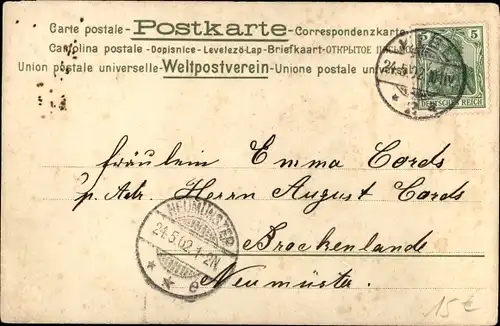 Carte postale - Postkarte - Correspondenzkarte
Cartolina postale - Dopisnice - Levelező-Lap - Briefkaart - ОТКРЫТОЕ
Union postale universelle - Weltpostverein - Unione postale
5
DEUTSCHES REICH
24.5.02
Fräulein Emma Cords
p. Adr. Herrn August Cords
Brockenlande
Neumünster.
NEUMÜNSTER
24.5.02. 1-2N
* * e
15€